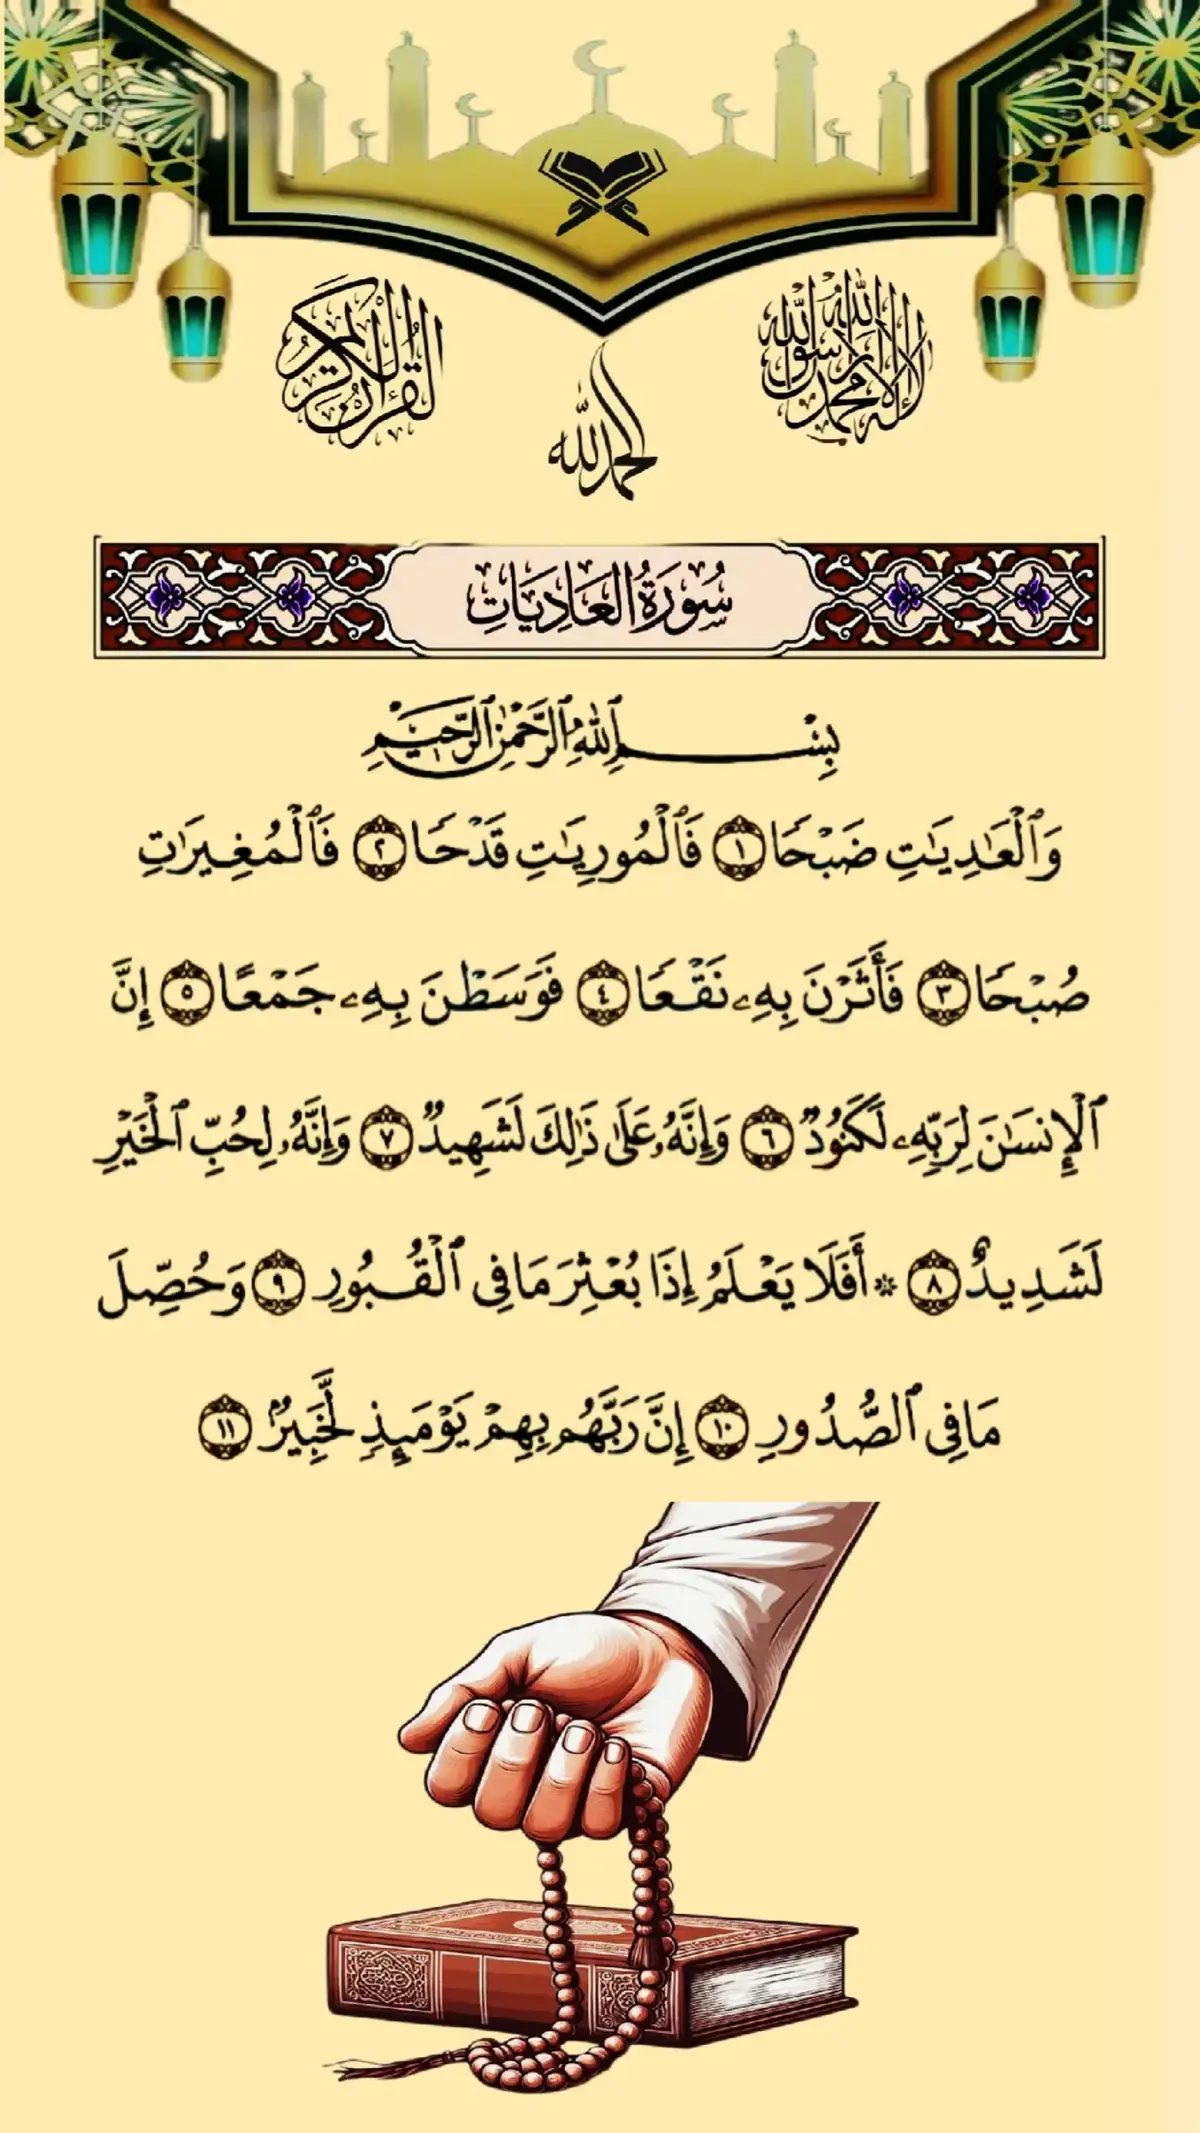 القرآن الكريم
لا إله إلا الله محمد رسول الله
الحمد لله
سُورَةُ الْعَادِيَاتِ
بِسْمِ ٱللَّهِ ٱلرَّحْمَٰنِ ٱلرَّحِيمِ
وَٱلْعَٰدِيَٰتِ ضَبْحًا ١ فَٱلْمُورِيَٰتِ قَدْحًا ٢ فَٱلْمُغِيرَٰتِ
صُبْحًا ٣ فَأَثَرْنَ بِهِۦ نَقْعًا ٤ فَوَسَطْنَ بِهِۦ جَمْعًا ٥ إِنَّ
ٱلْإِنسَٰنَ لِرَبِّهِۦ لَكَنُودٌ ٦ وَإِنَّهُۥ عَلَىٰ ذَٰلِكَ لَشَهِيدٌ ٧ وَإِنَّهُۥ لِحُبِّ ٱلْخَيْرِ
لَشَدِيدٌ ٨ ۞ أَفَلَا يَعْلَمُ إِذَا بُعْثِرَ مَا فِى ٱلْقُبُورِ ٩ وَحُصِّلَ
مَا فِى ٱلصُّدُورِ ١٠ إِنَّ رَبَّهُم بِهِمْ يَوْمَئِذٍ لَّخَبِيرٌۢ ١١